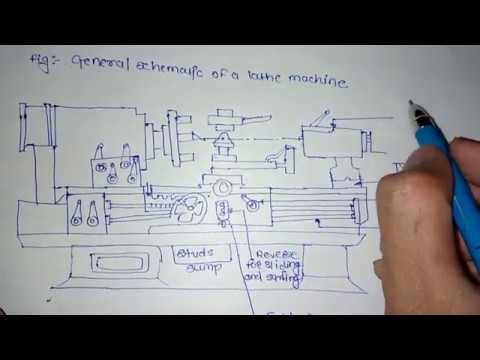 Fig:- General schematic of a lathe machine
Studs
sump
Reverse
for sliding
and surfing